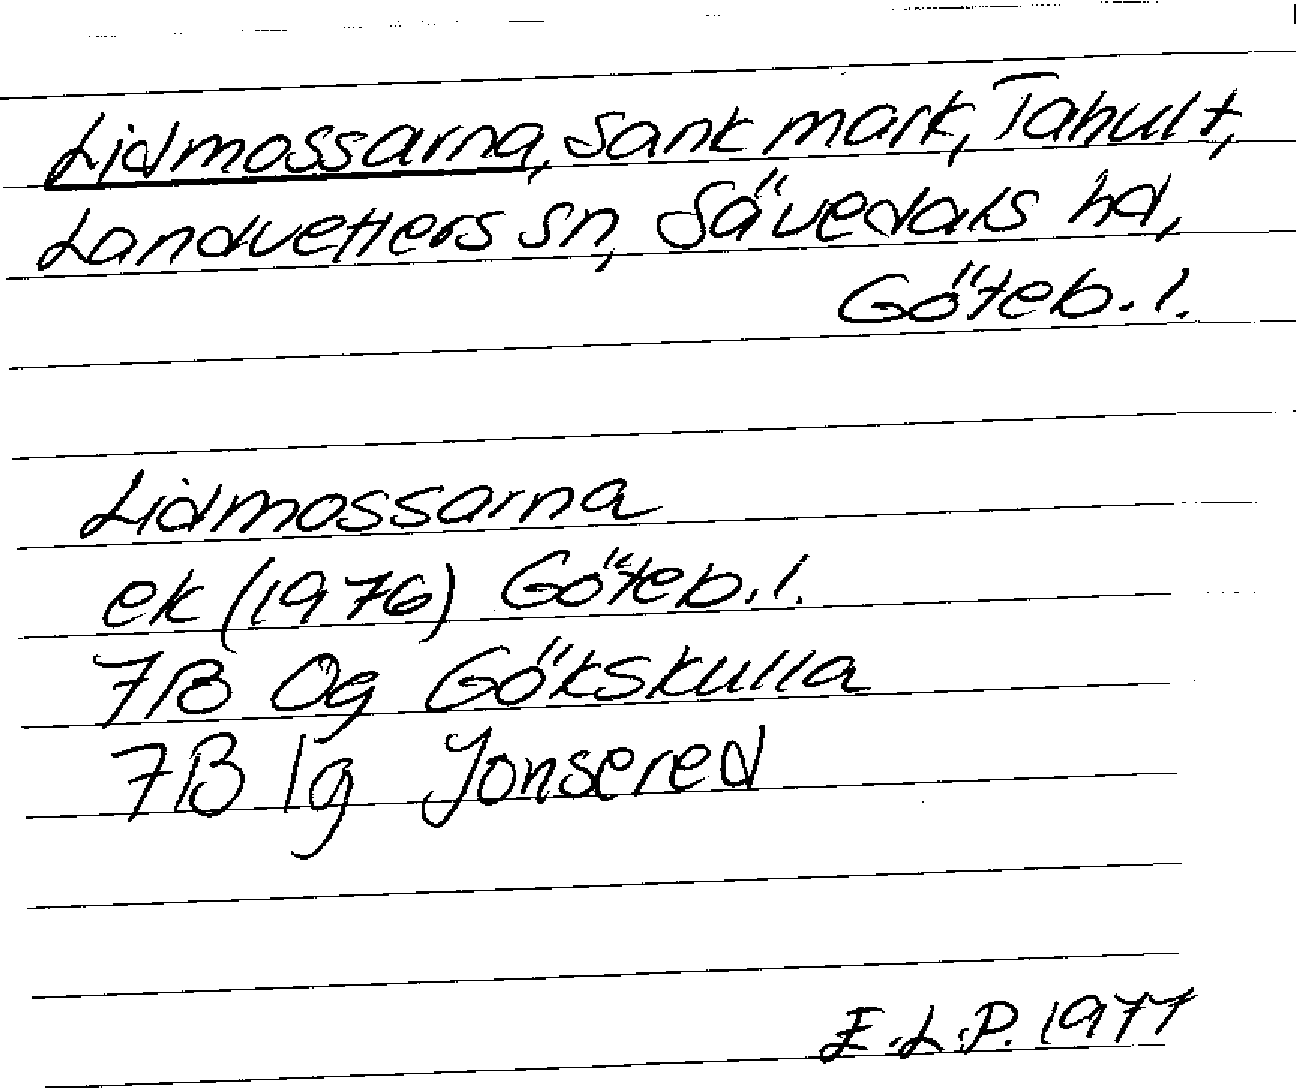 Lidmossarna, sank mark, Tahult,
Landvetters sn, Sävedals hd,
Göteb. l.
Lidmossarna
ek (1976) Göteb. l.
7B 0g Gökskulla
7B 1g Jonsered
E.L.P. 1977